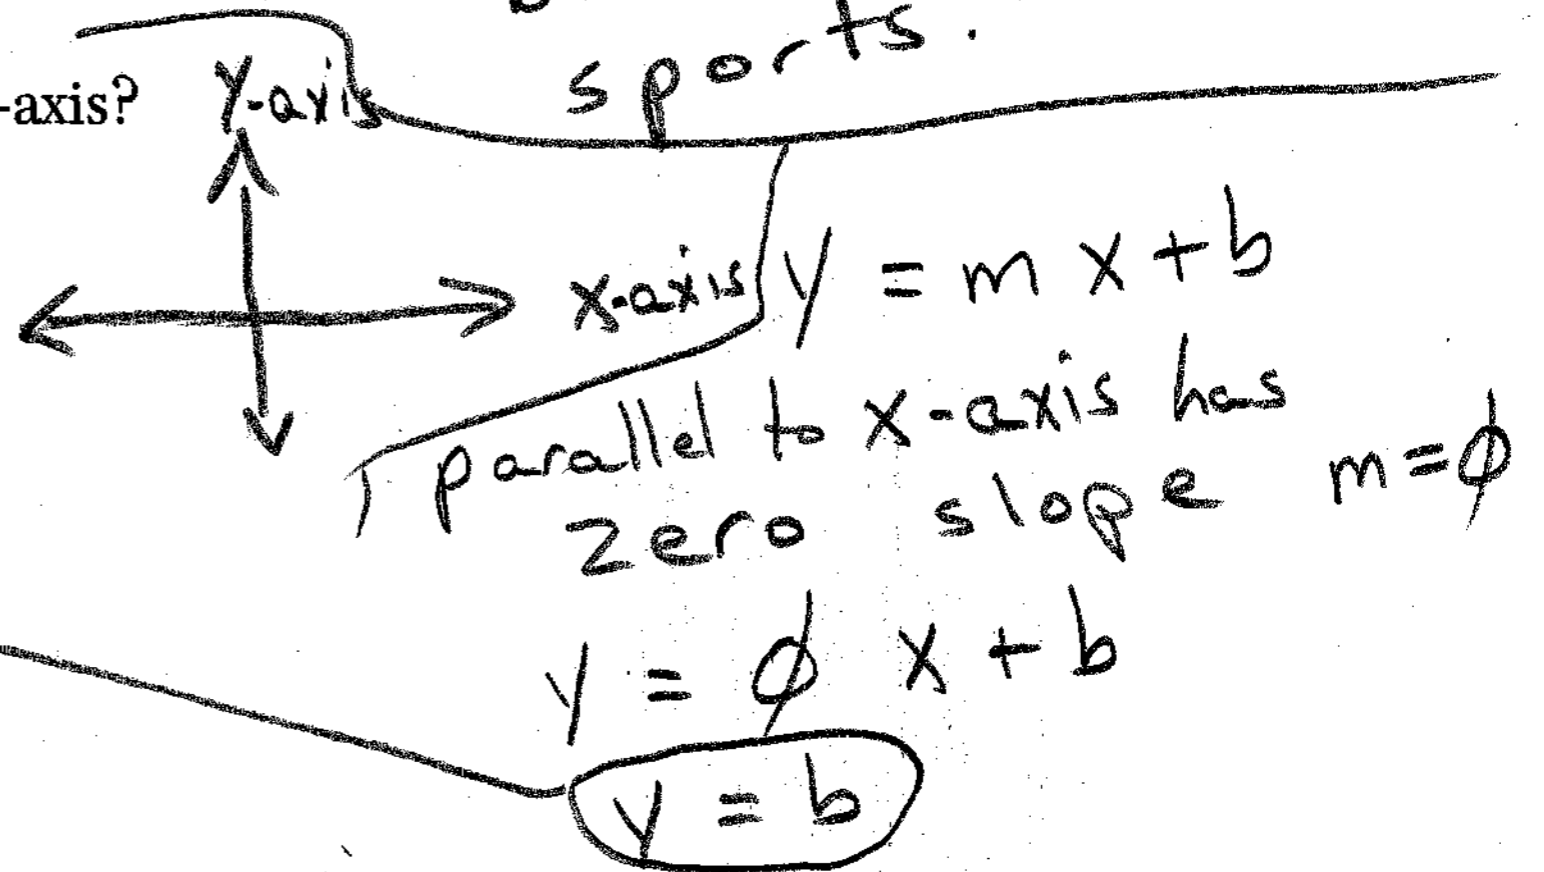 sports.
-axis? y-axis
x-axis
y = mx + b
parallel to x-axis has
zero slope m = ϕ
y = ϕ x + b
y = b